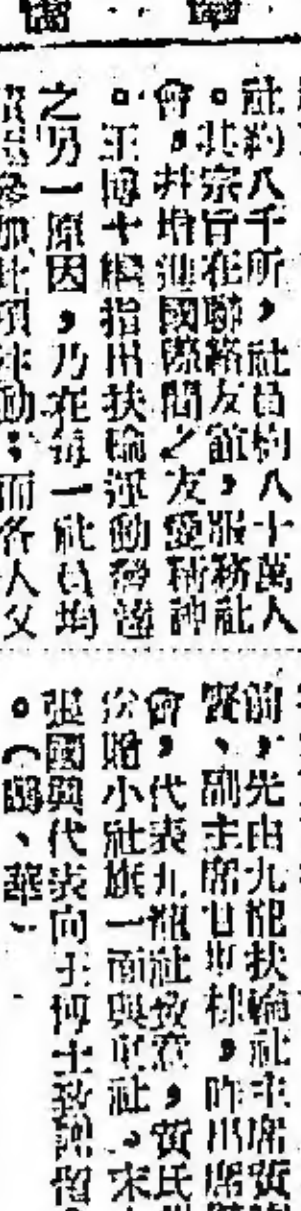 社約八千所，社員約八十萬人
。其宗旨在聯絡友誼，服務社
會，幷增進國際間之友愛精神
。王博士繼指出扶輪運動發達
之另一原因，乃在每一社員均
參加此項活動；而各人父
前，先由九龍扶輪社主席賀
賢、副主席甘斯棣，昨出席
會，代表九龍社致意，賀氏
贈小社旗一面與東社。末
張國興代表向王博士致謝
。（鵬、華）